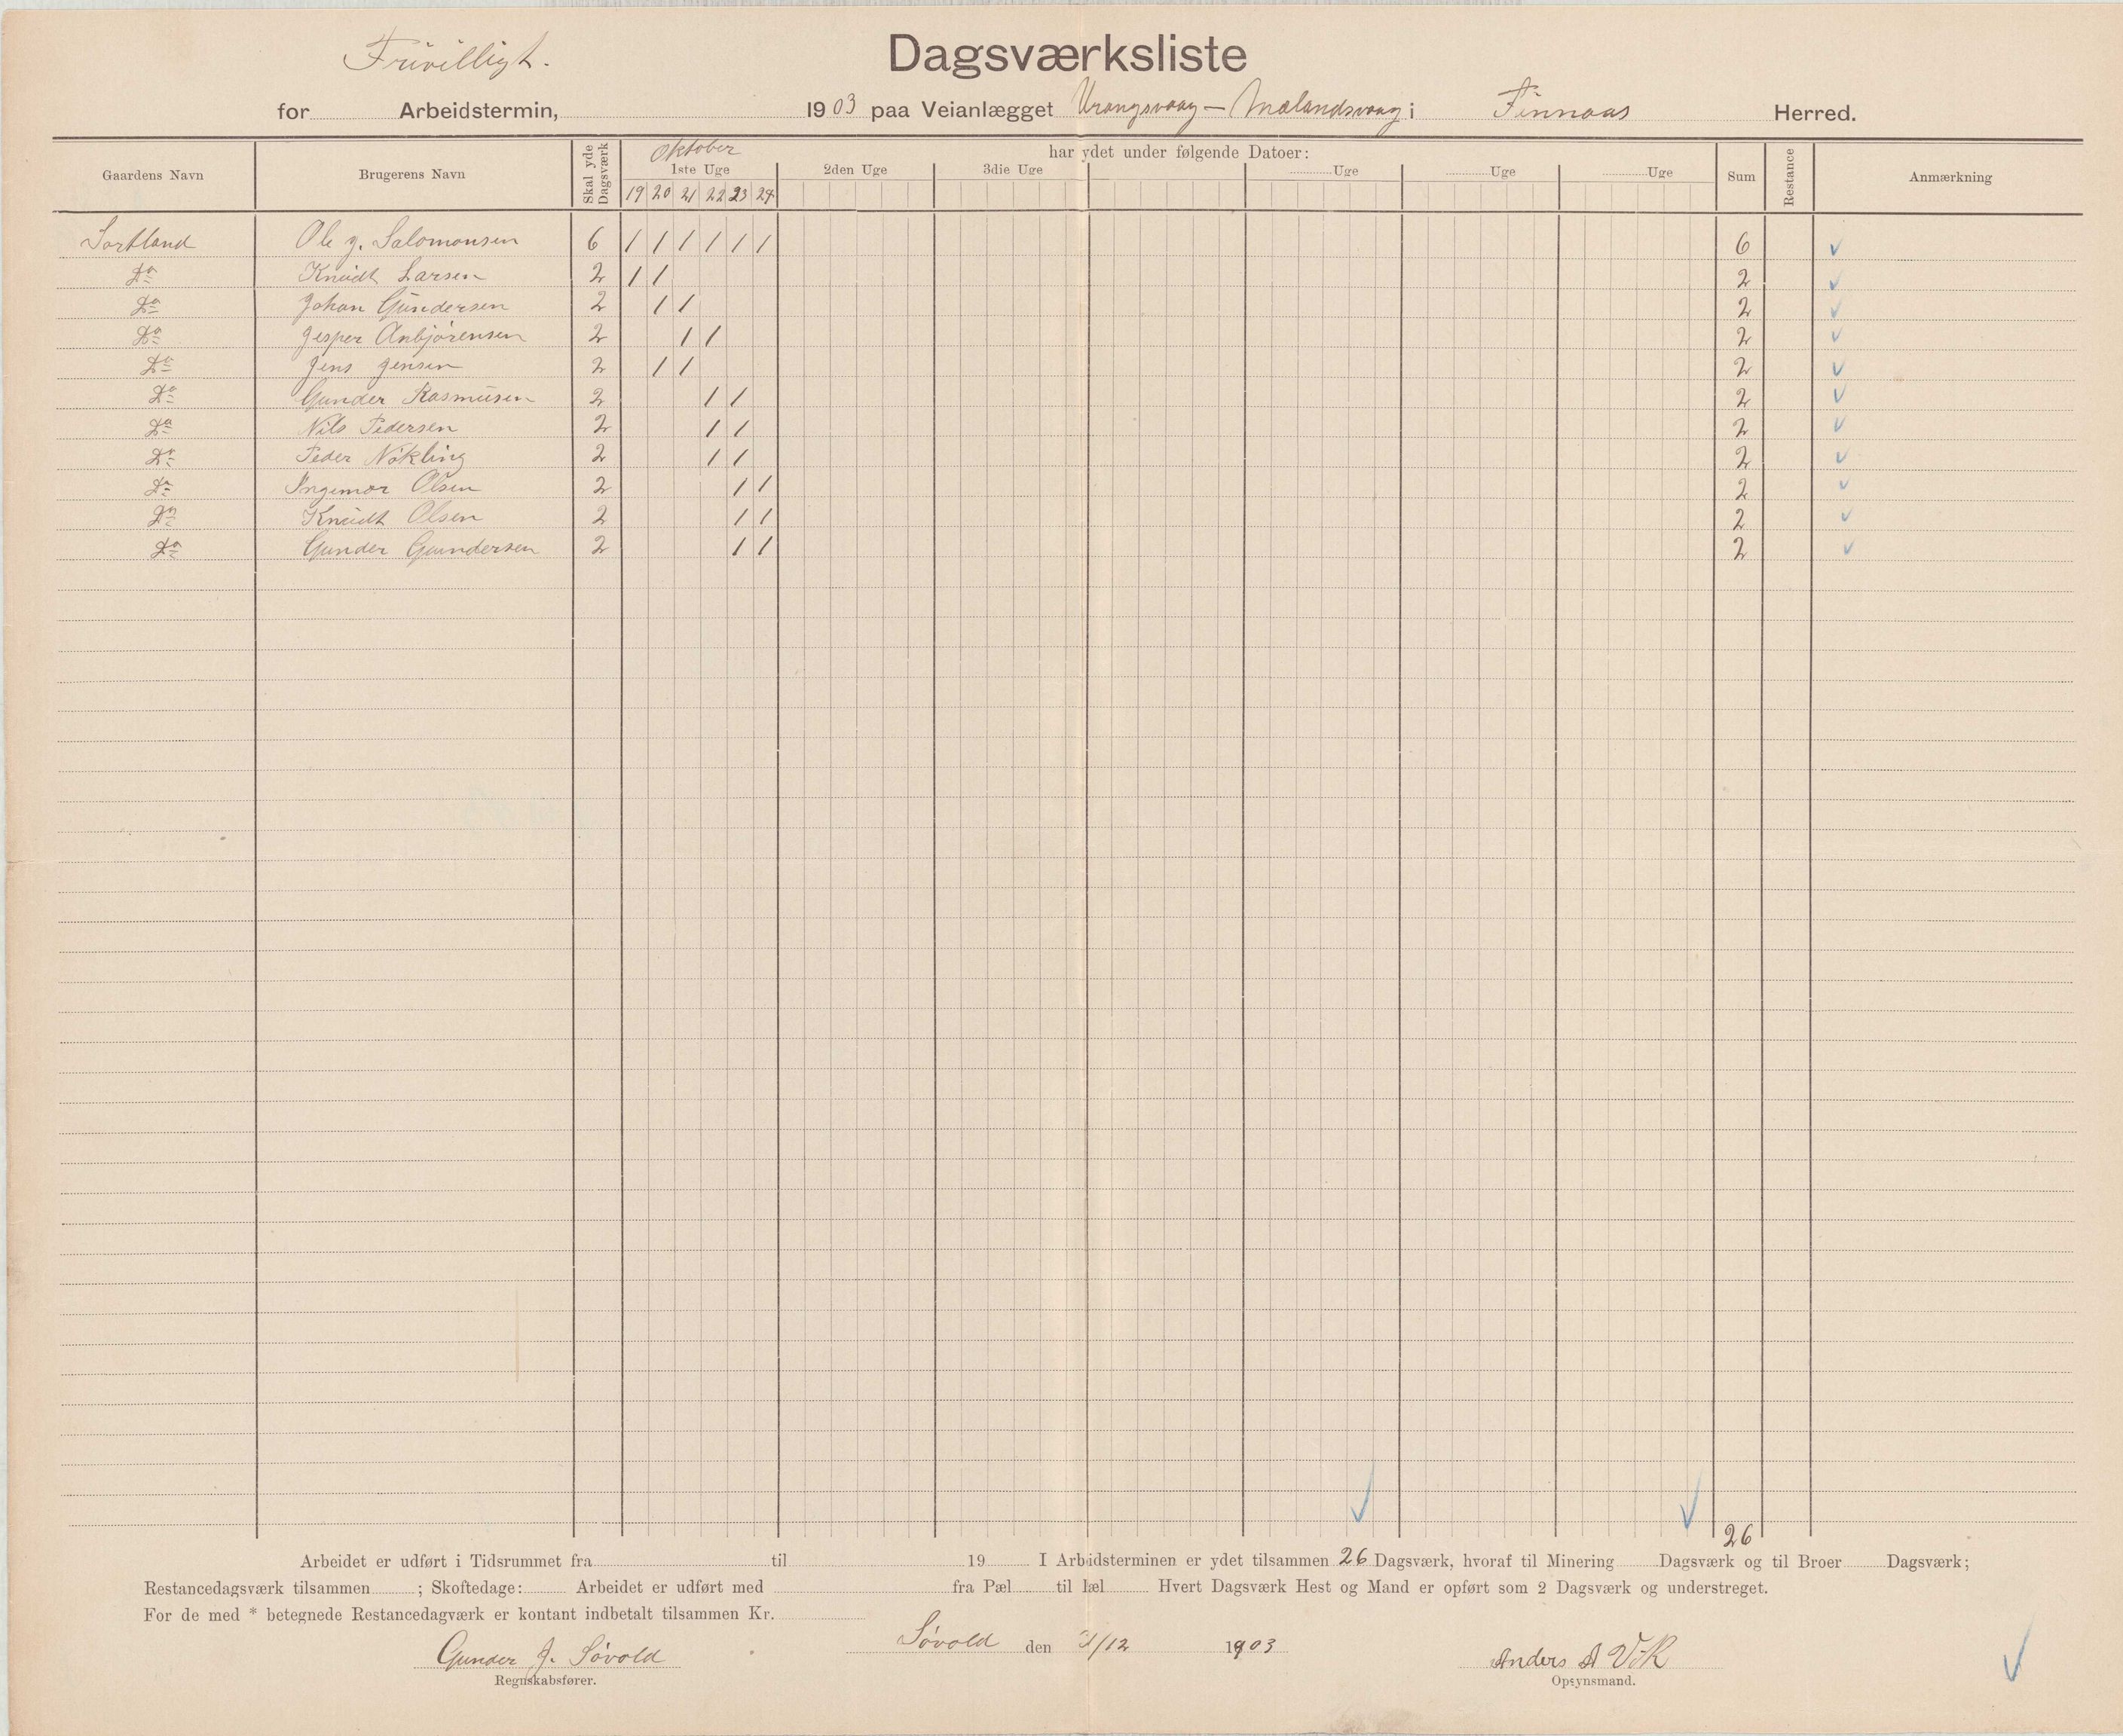 Frivilligt.
Dagsværksliste
for Arbeidstermin, 1903 paa Veianlægget Vrangsvaag – Mælandsvaag i Finnaas Herred.
Gaardens Navn Brugerens Navn Skal yde Dagsværk Oktober har ydet under følgende Datoer: Sum Restance Anmærkning
1ste Uge 2den Uge 3die Uge Uge Uge Uge
19 20 21 22 23 24
Sortland Ole J. Salomonsen 6 / / / / / / 6 ✓
Do Knudt Larsen 2 / / 2 ✓
Do Johan Gundersen 2 / / 2 ✓
Do Jesper Anbjørensen 2 / / 2 ✓
Do Jens Jensen 2 / / 2 ✓
Do Gunder Rasmusen 2 / / 2 ✓
Do Nils Pedersen 2 / / 2 ✓
Do Peder Nökling 2 / / 2 ✓
Do Ingemor Olsen 2 / / 2 ✓
Do Knudt Olsen 2 / / 2 ✓
Do Gunder Gundersen 2 / / 2 ✓
26
Arbeidet er udført i Tidsrummet fra til 19 I Arbidsterminen er ydet tilsammen 26 Dagsværk, hvoraf til Minering Dagsværk og til Broer Dagsværk;
Restancedagsværk tilsammen ; Skoftedage: Arbeidet er udført med fra Pæl til læl Hvert Dagsværk Hest og Mand er opført som 2 Dagsværk og understreget.
For de med * betegnede Restancedagværk er kontant indbetalt tilsammen Kr.
Søvold den /12 1903
Gunder J. Søvold Anders A Vik
Regnskabsfører. Opsynsmand.